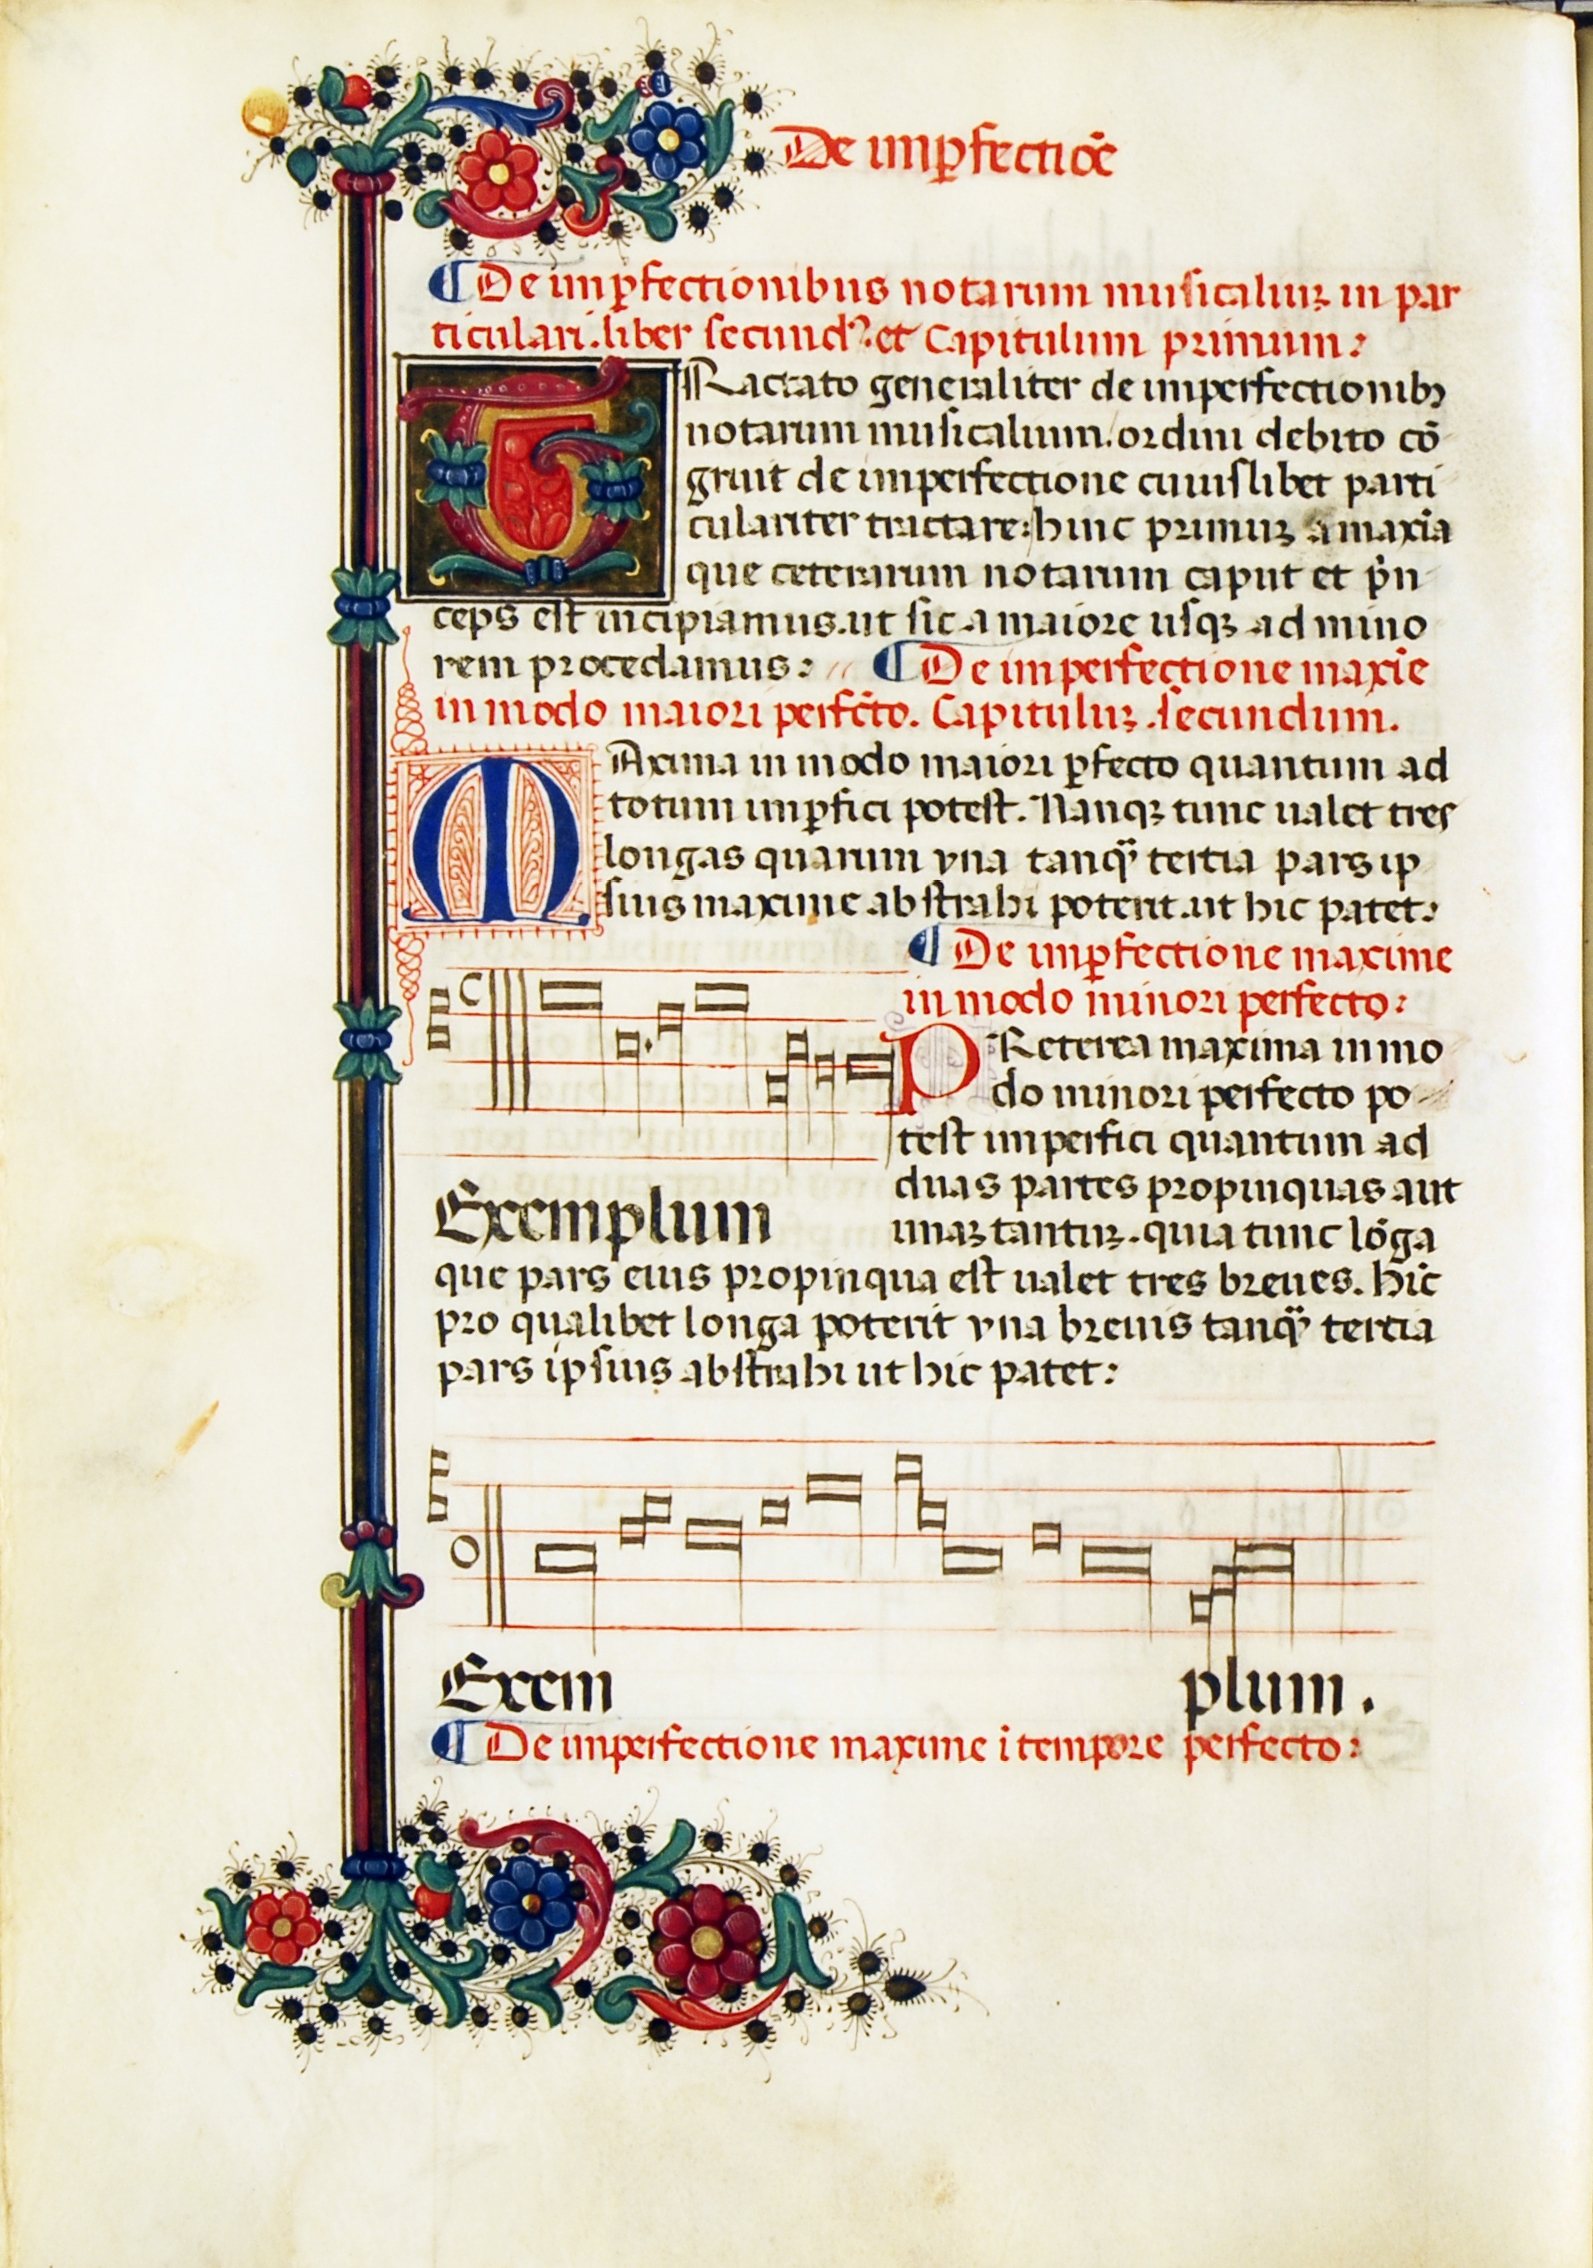 De imꝑfectiōe
¶ De imꝑfectionibus notarum musicaliuꝫ in par
ticulari. liber secundꝰ. et Capitulum primum:
TRactato generaliter de imperfectionibꝫ
notarum musicalium. ordini debito cō
gruit de imperfectione cuiuslibet parti
culariter tractare: hinc primuꝫ a maxīa
que ceterarum notarum caput et p̄n
ceps est incipiamus. ut sic a maiore usqꝫ ad mino
rem procedamus: ¶ De imperfectione maxīe
in modo maiori perfc̄to. Capituluꝫ .secundum.
MAxima in modo maiori ꝑfecto quantum ad
totum imꝑfici potest. Nanqꝫ tunc ualet tres
longas quarum vna tanq̄ tertia pars ip
sius maxime abstrahi poterit. ut hic patet:
¶ De imꝑfectione maxime
in modo minori perfecto:
PReterea maxima in mo
do minori perfecto po
test imperfici quantum ad
duas partes propinquas aut
unaꝫ tantuꝫ. quia tunc lōga
Exemplum
que pars eius propinqua est ualet tres breues. hīc
pro qualibet longa poterit vna breuis tanq̄ tertia
pars ipsius abstrahi ut hic patet:
Exem plum.
¶ De imperfectione maxime ī tempore perfecto: